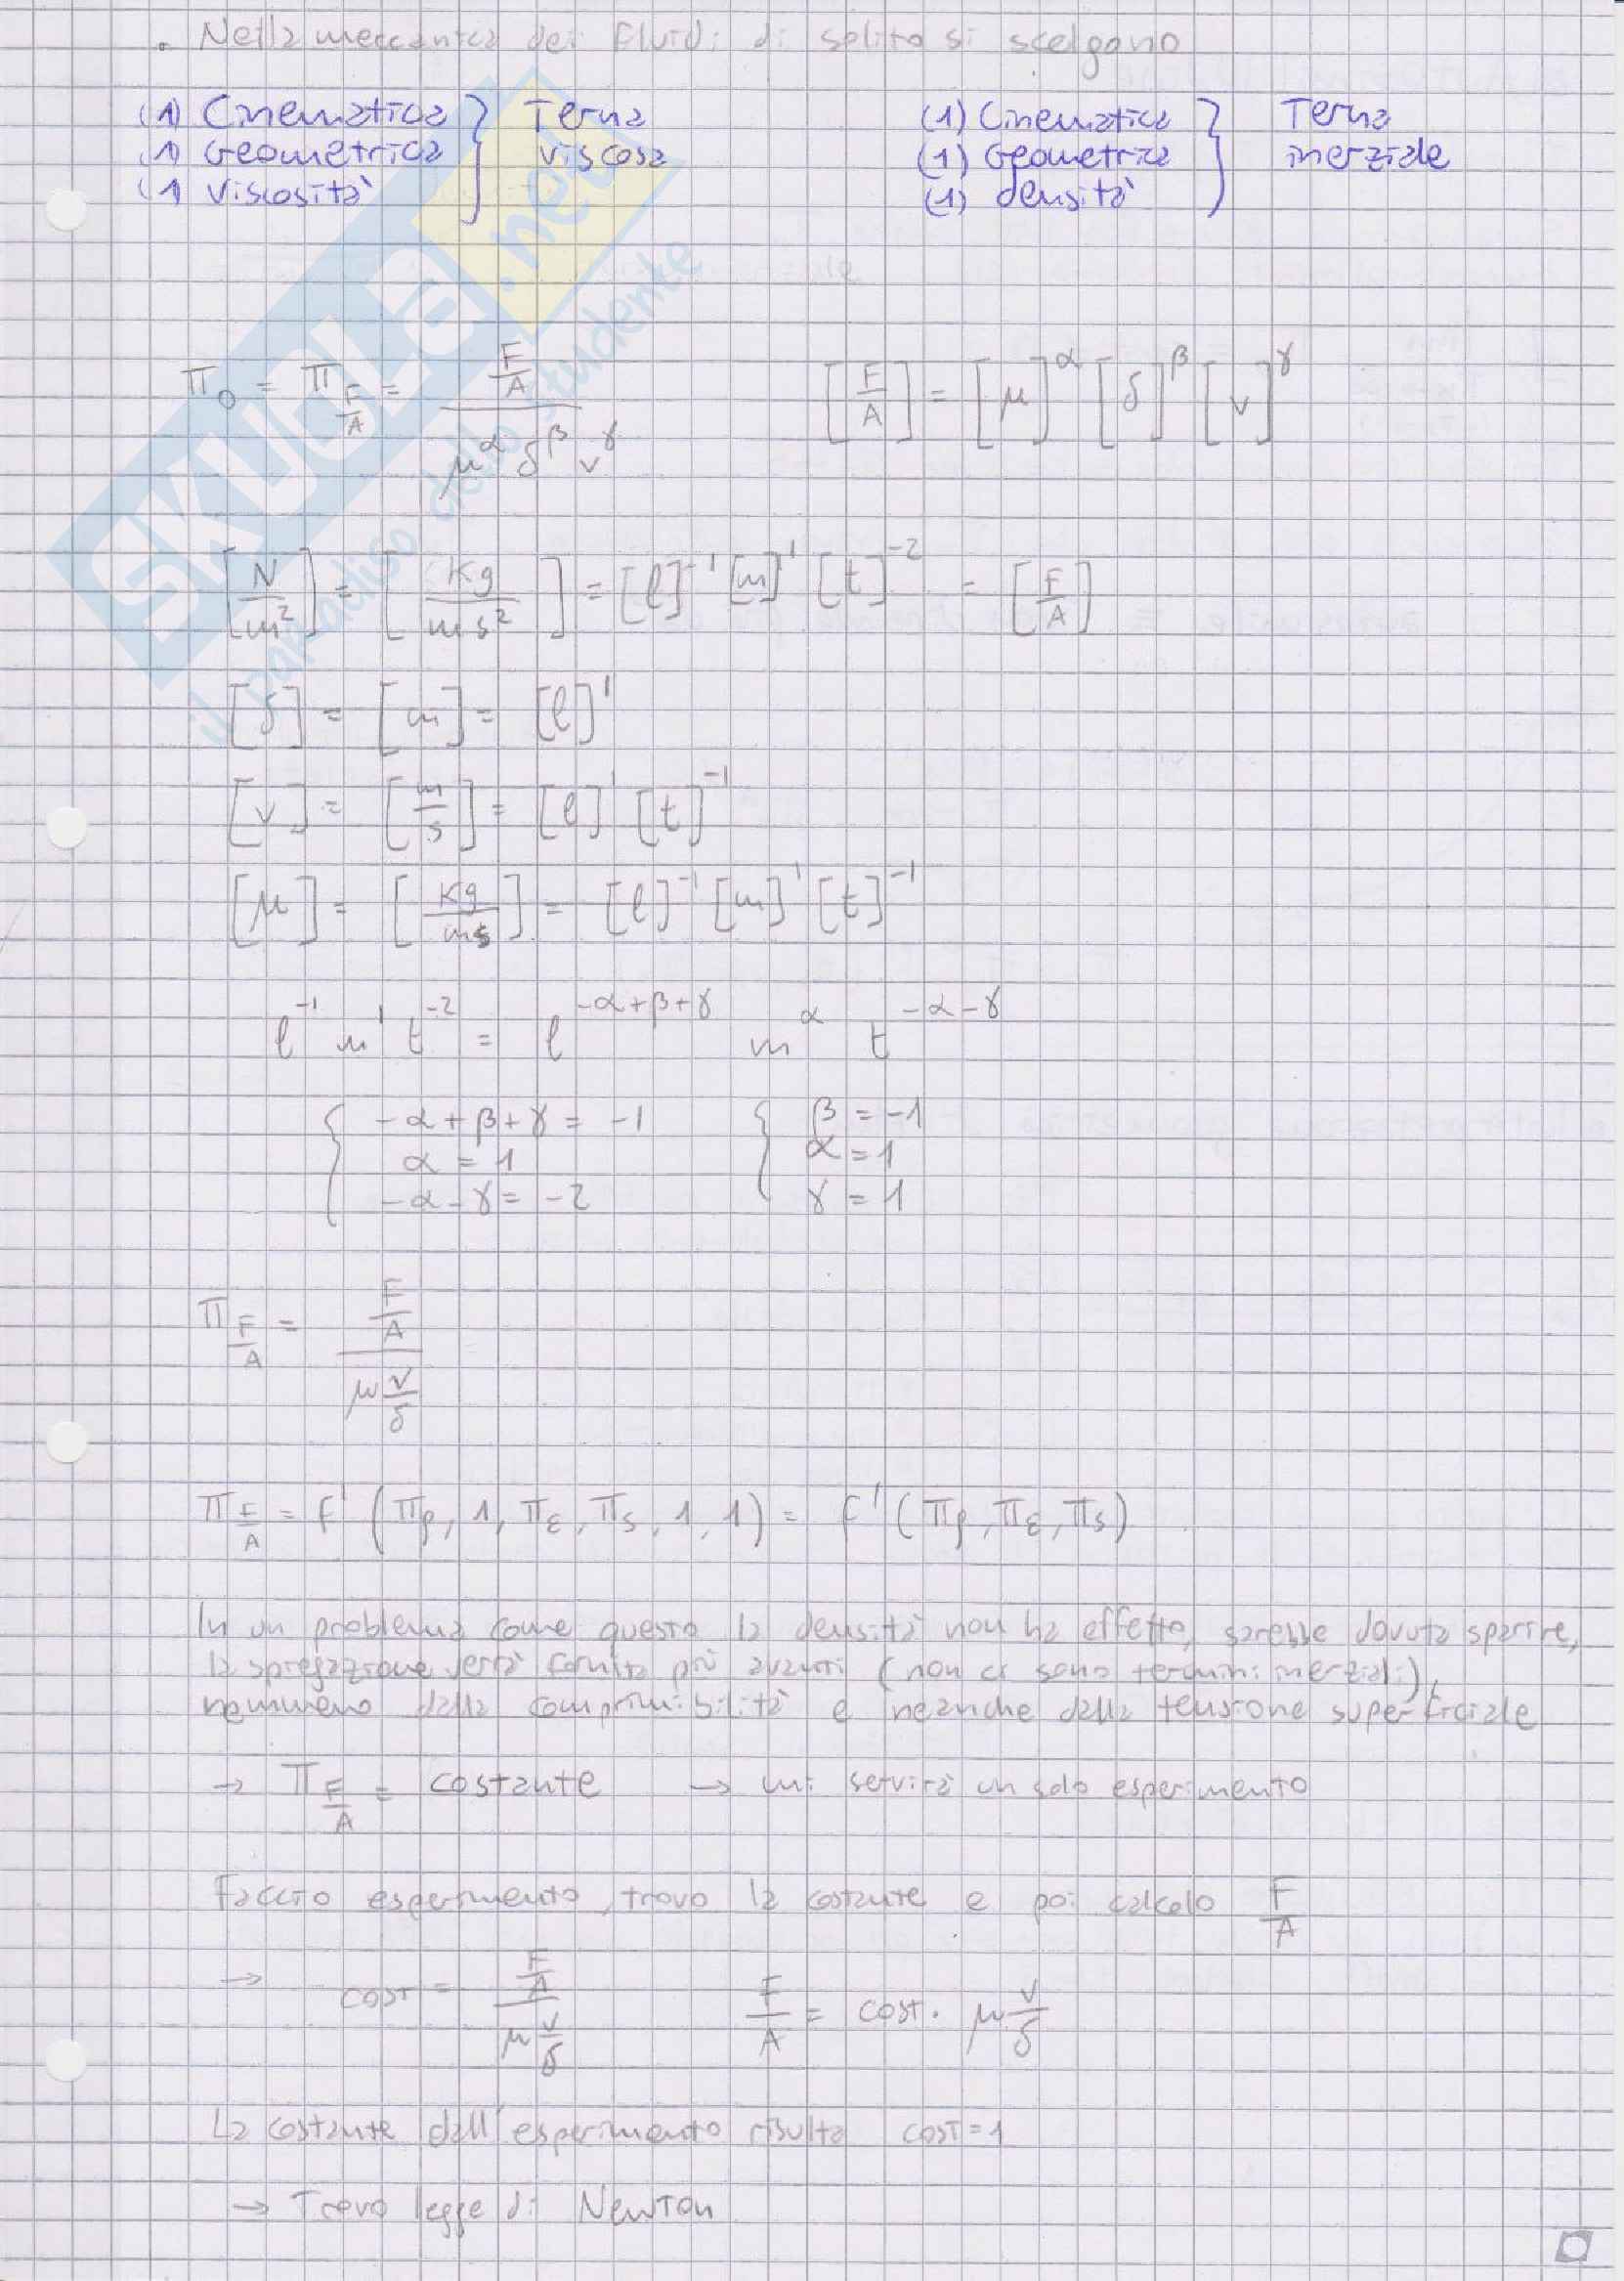 . Nella meccanica dei fluidi di solito si scelgono
(1) Cinematica
(1) Geometrica
(1) Viscosità
} Terna viscosa
(1) Cinematica
(1) Geometrica
(1) densità
} Terna inerziale
SKUOLA.net
il paradiso dello studente
π₀ = π_{F/A} = (F/A) / (μ^α δ^β v^γ)    [F/A] = [μ]^α [δ]^β [v]^γ
[N/m²] = [Kg/ms²] = [l]^-1 [m]^1 [t]^-2 = [F/A]
[δ] = [m] = [l]^1
[v] = [m/s] = [l]^1 [t]^-1
[μ] = [Kg/ms] = [l]^-1 [m]^1 [t]^-1
l^-1 m^1 t^-2 = l^(-α+β+γ) m^α t^(-α-γ)
{ -α+β+γ = -1    { β = -1
α = 1    α = 1
-α-γ = -2    γ = 1
π_{F/A} = (F/A) / (μ v/δ)
π_{F/A} = f' (π_ρ, 1, π_ε, π_s, 1, 1) = f' (π_ρ, π_ε, π_s)
In un problema come questo la densità non ha effetto, sarebbe dovuta sparire,
la spiegazione verrà fornita più avanti (non ci sono termini inerziali),
nemmeno dalla comprimibilità e neanche dalla tensione superficiale
→ π_{F/A} = costante    → mi servirà un solo esperimento
Faccio esperimento, trovo la costante e poi calcolo F/A
→ cost = (F/A) / (μ v/δ)    F/A = cost. μ v/δ
La costante dall'esperimento risulta cost = 1
→ Trovo legge di Newton